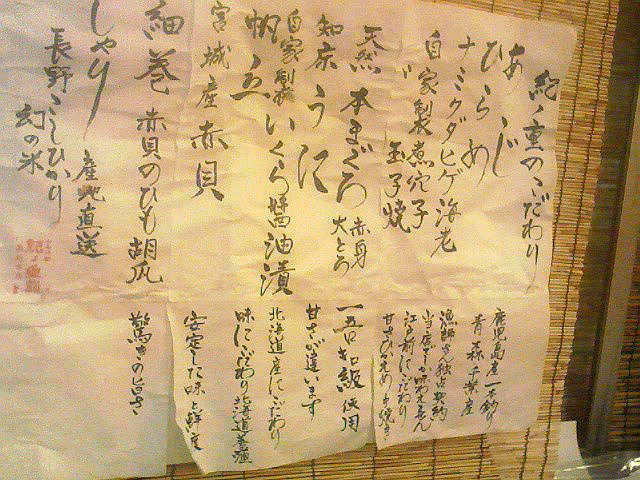 紀ノ重のこだわり
あじ
鹿児島産一本釣り
ひらめ
青森千葉産
ナミクダヒゲ海老
漁師さん独占契約
当店でしか味わえません
自家製煮穴子
江戸前にこだわり
玉子焼
甘さひかえめ手焼き
天然本まぐろ 赤身 大とろ
一五〇キロ級使用
知床うに
甘さが違います
自家製いくら醤油漬
北海道産にこだわり
帆立
味にこだわり北海道養殖
宮城産赤貝
安定した味と鮮度
細巻 赤貝のひも胡瓜
驚きの旨さ
しゃり 産地直送
長野こしひかり
幻の米